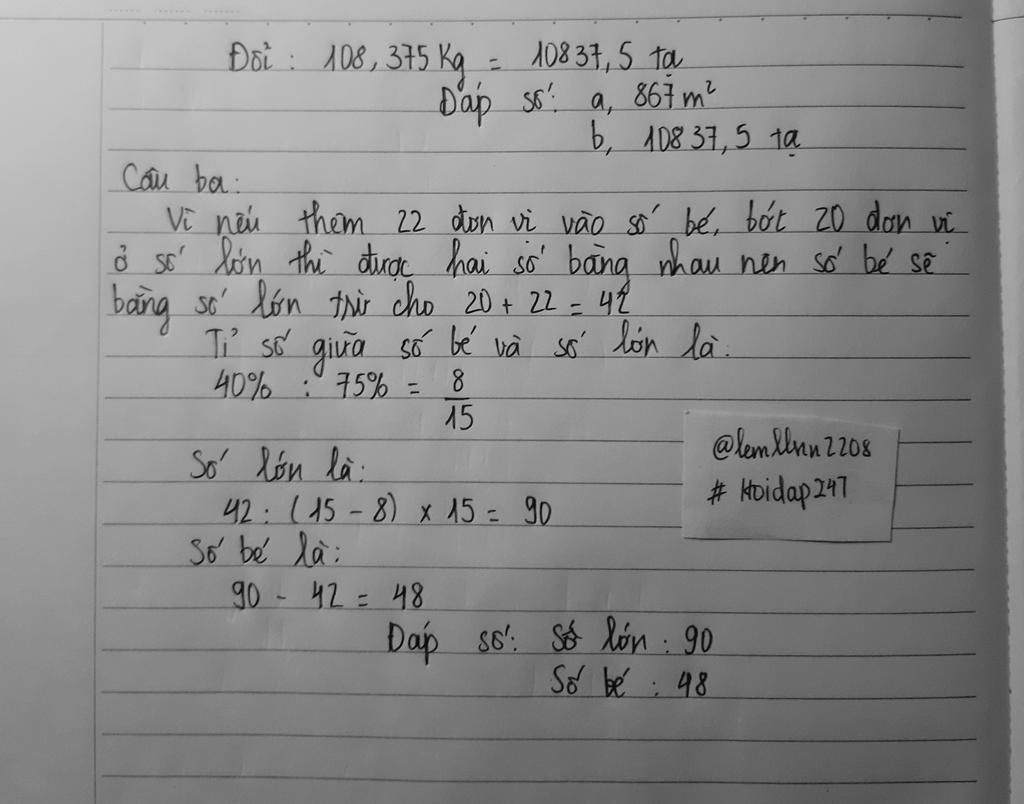 Đổi : 108,375 Kg = 10837,5 tạ
Đáp số: a, 867 m²
b, 10837,5 tạ
Câu ba:
Vì nếu thêm 22 đơn vị vào số bé, bớt 20 đơn vị
ở số lớn thì được hai số bằng nhau nên số bé sẽ
bằng số lớn trừ cho 20 + 22 = 42
Tỉ số giữa số bé và số lớn là:
40% : 75% = 8/15
Số lớn là:
42 : (15 - 8) × 15 = 90
Số bé là:
90 - 42 = 48
Đáp số: Số lớn : 90
Số bé : 48
@lemllnn2208
# Hoidap247